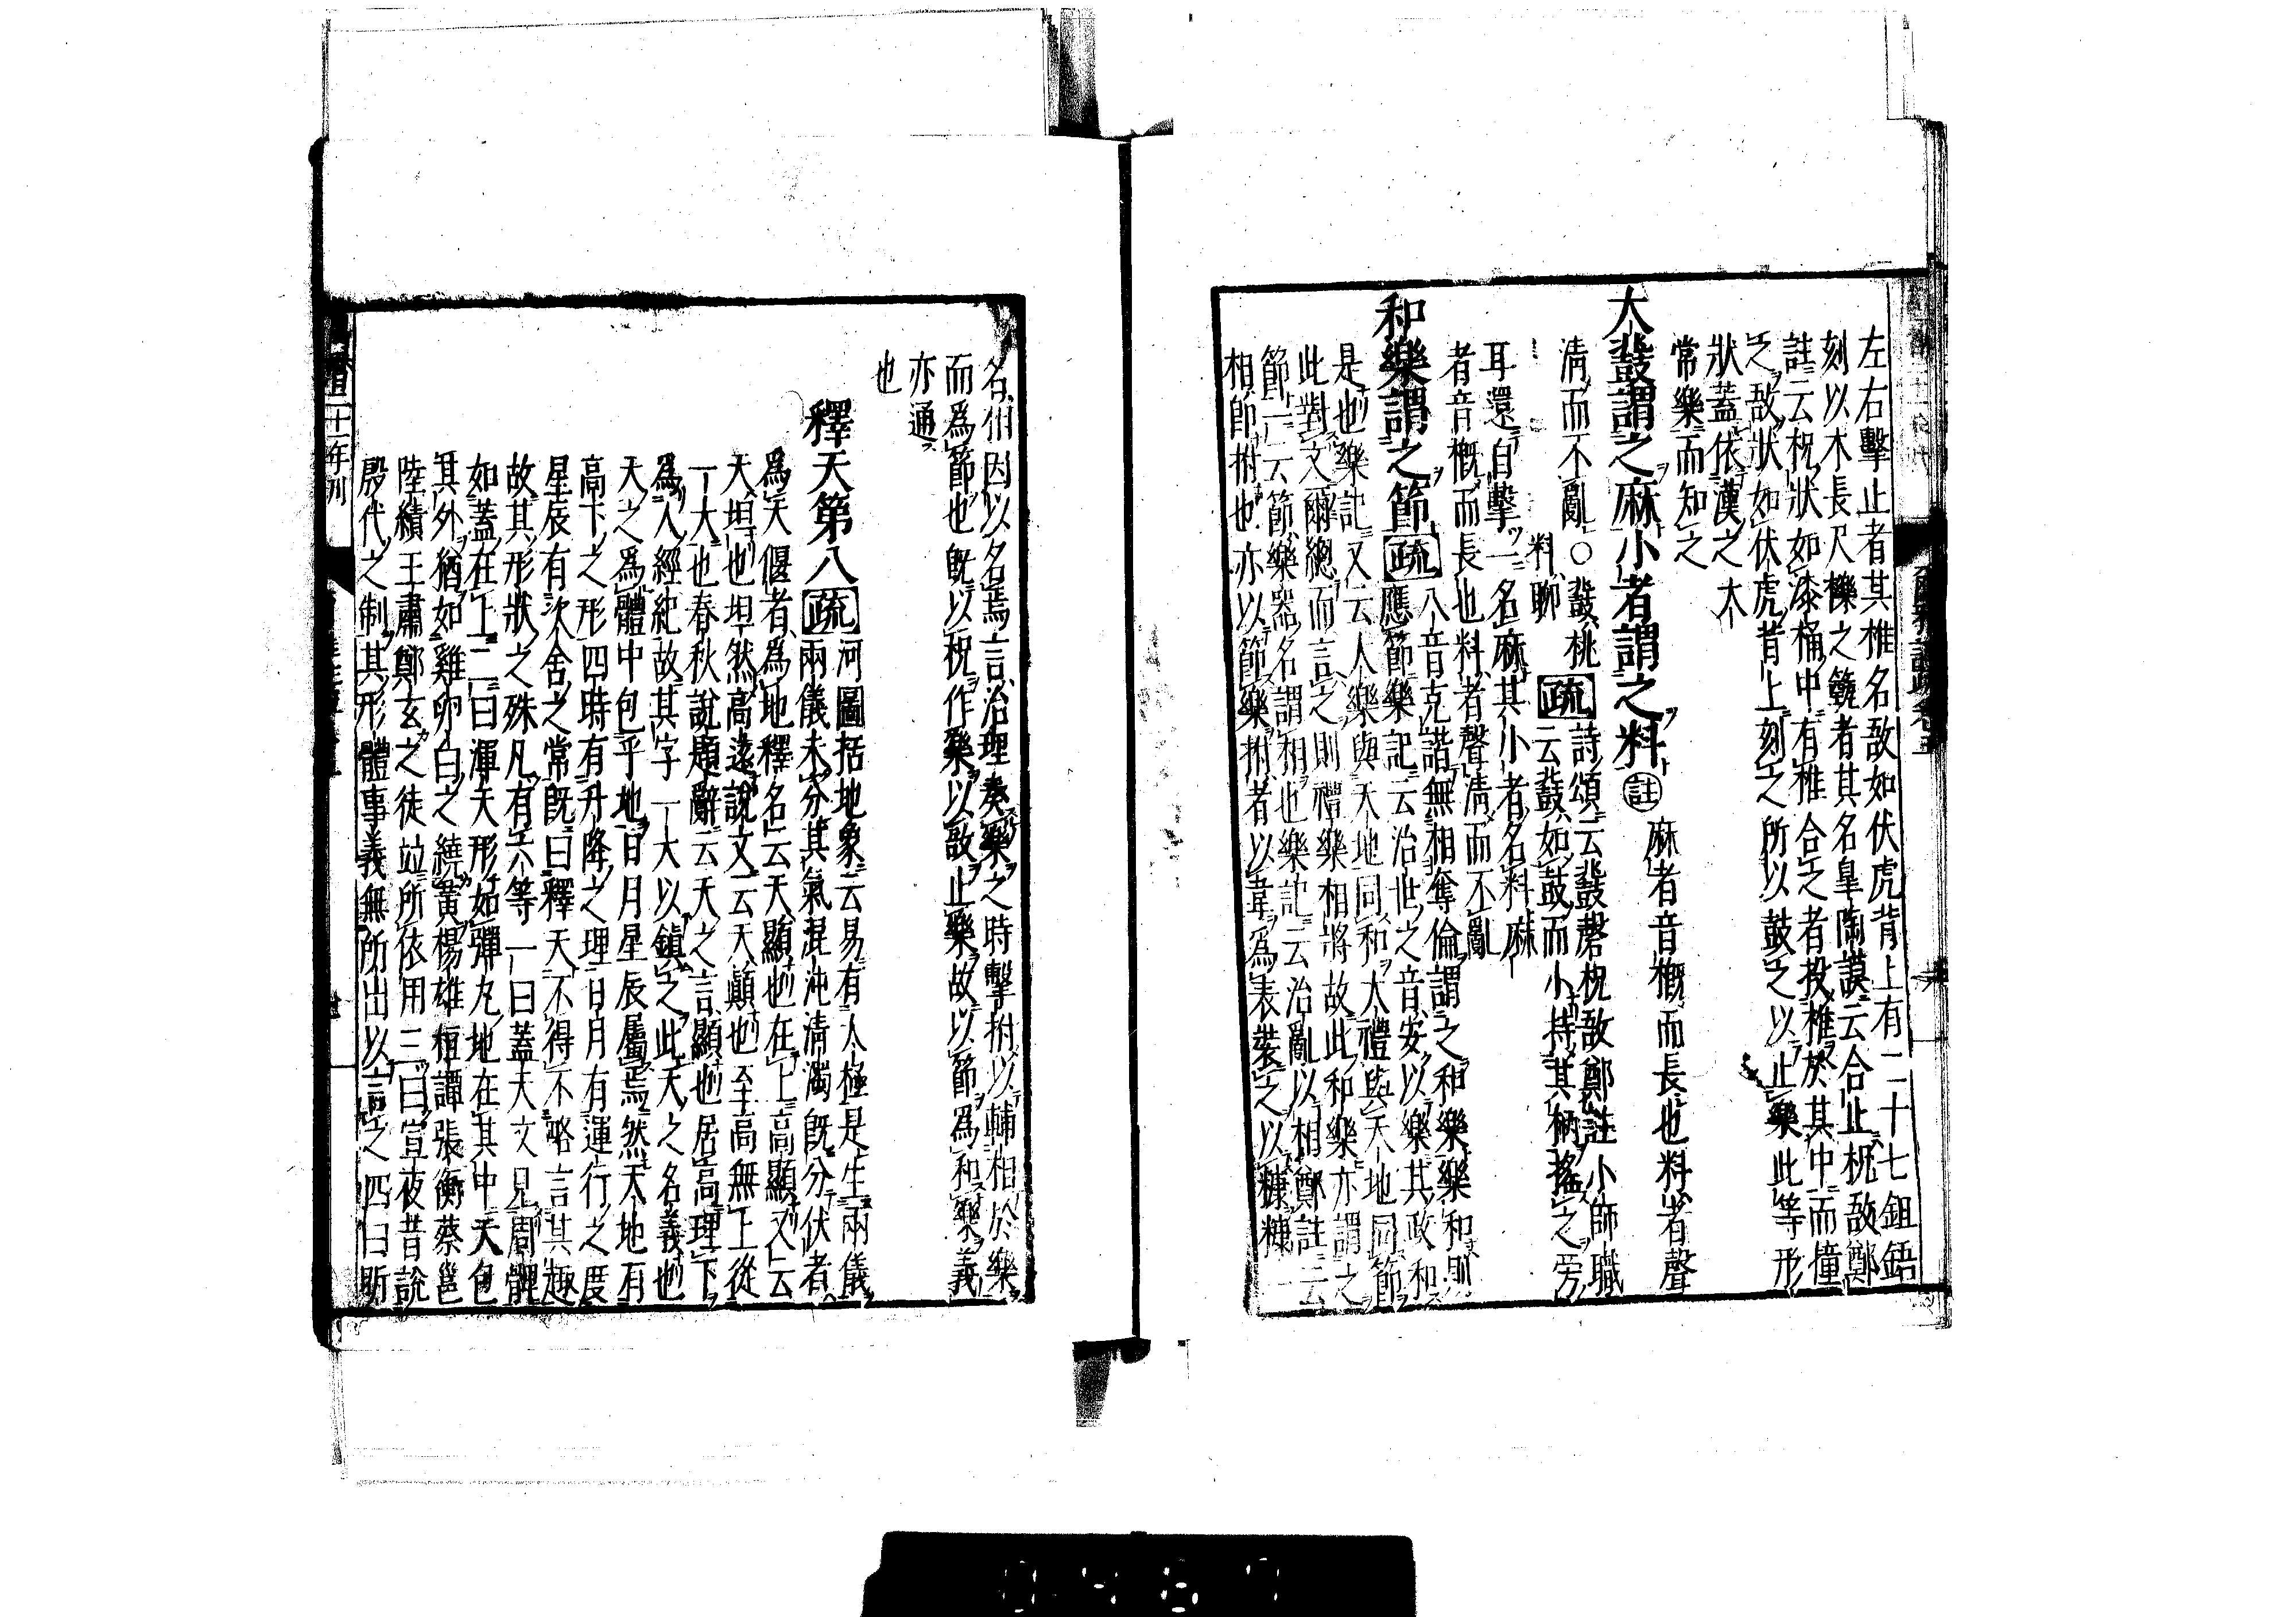 左右擊止者其椎名敔如伏虎背上有二十七鉏鋙
刻以木長尺櫟之籈者其名皐陶謨云合止柷敔鄭
註云柷狀如漆桶中有椎合之者投椎於其中而撞
之敔狀如伏虎背上刻之所以鼓之以止樂此等形
狀蓋依漢之太
常樂而知之
大鼗謂之麻小者謂之料 註 麻者音概而長也料者聲
清而不亂○鼗桃
料聊
疏 詩頌云鼗磬柷敔鄭註小師職
云鼗如鼓而小持其柄搖之旁
耳還自擊一名麻其小者名料麻
者音概而長也料者聲清而不亂
和樂謂之節 疏 八音克諧無相奪倫謂之和樂樂和則
應節樂記云治世之音安以樂其政和
是也樂記又云大樂與天地同和大禮與天地同節
此對文爾總而言之則禮樂相將故此和樂亦謂之
節一云節樂器名謂相也樂記云治亂以相鄭註云
相即拊也亦以節樂拊者以韋為表裝之以糠糠一
名相因以名焉言治理奏樂之時擊拊以輔相於樂
而為節也既以柷作樂以敔止樂故以節為和樂義
亦通
也
釋天第八 疏 河圖括地象云易有太極是生兩儀
兩儀未分其氣混沌清濁既分伏者
為天偃者為地釋名云天顯也在上高顯又云
天坦也坦然高遠說文云天顚也至高無上從
一大也春秋說題辭云天之言顯也居高理下
為人經紀故其字一大以鎮之此天之名義也
天之為體中包乎地日月星辰屬焉然天地有
高下之形四時有升降之理日月有運行之度
星辰有次舍之常既曰釋天不得不略言其趣
故其形狀之殊凡有六等一曰蓋天文見周髀
如蓋在上二曰渾天形如彈丸地在其中天包
其外猶如雞卵白之繞黃楊雄桓譚張衡蔡邕
陸績王肅鄭玄之徒竝所依用三曰宣夜昔說
殷代之制其形體事義無所出以言之四曰昕